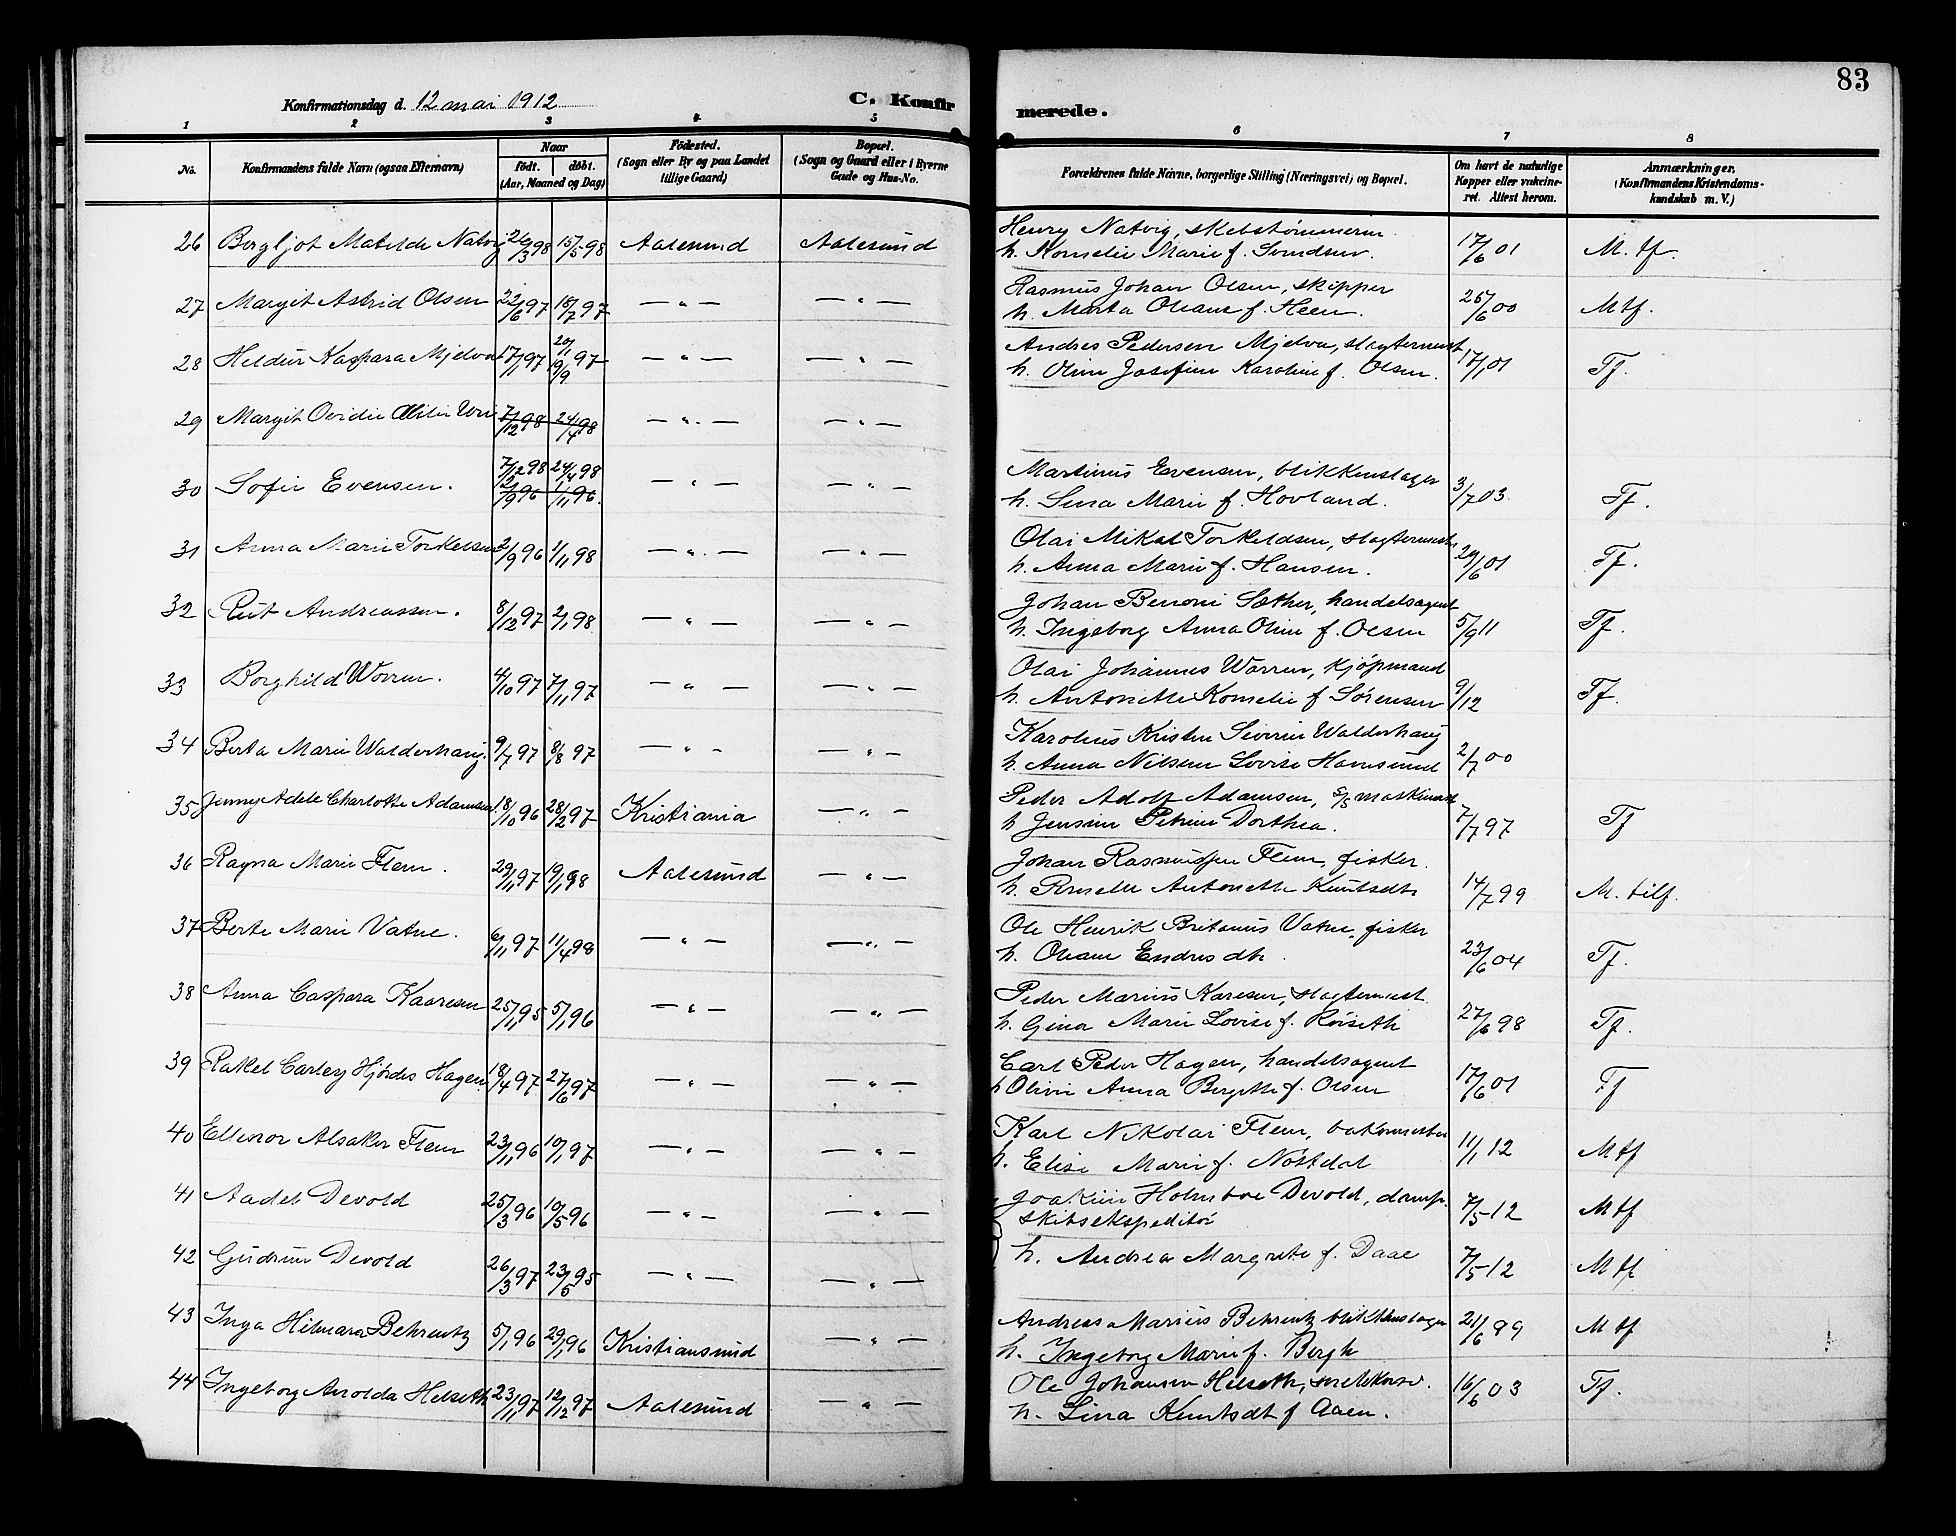 83
Konfirmationsdag d. 12 mai 1912
C. Konfirmerede.
1 2 3 4 5 6 7 8
No.
Konfirmandens fulde Navn (ogsaa Efternavn)
Naar
födt. döbt.
(Aar, Maaned og Dag)
Födested.
(Sogn eller By og paa Landet
tillige Gaard)
Bopæl.
(Sogn og Gaard eller i Byerne
Gade og Hus-No.
Forældrenes fulde Navne, borgerlige Stilling (Næringsvei) og Bopæl.
Om havt de naturlige
Kopper eller vakcine-
ret. Attest herom.
Anmærkninger.
(Konfirmandens Kristendoms-
kundskab m. V.)
26 Bergljot Matilde Natvig 26/3 98 15/5 98 Aalesund Aalesund
Henry Natvig, skibstømmerm.
h. Kornelie Marie f. 17/6 01 M. tf.
27 Margit Astrid Olsen 22/6 97 18/7 97 — " — — " —
Rasmus Johan Olsen, skipper
h. Marta Oleane f. Heen. 26/6 00 Mtf.
28 Heldur Kaspara Mjelva 17/1 97 — " — — " —
19/9 97
Andreas Pedersen Mjelva, slagtermest
h. Oline Josefine Karoline f. Olsen. 17/1 01 Tf.
29 Margit Ovidie 7/12 98 24/4 98 — " — — " —
30 Sofie Evensen. 7/12 98 24/4 98 — " — — " —
2/9 96 1/11 96
Martinus Evensen, blikkenslager
h. Lina Marie f. Hovland. 3/7 03 Tf.
31 Anna Marie Torkelsen 2/9 96 1/11 98 — " — — " —
Olai Mikal Torkeldsen, slagtermester
h. Anna Marie f. Hansen. 29/6 01 Tf.
32 Rut Andreassen. 8/12 97 2/1 98 — " — — " —
Johan Benoni Sæther, handelsagent
h. Ingeborg Anna Oline f. Olsen 5/9 11 Tf.
33 Borghild Worren. 4/10 97 7/11 97 — " — — " —
Olai Johannes Worren, kjøpmand
h. Antonette Kornelie f Sørensen 9/12 Tf.
34 Berta Marie Walderhaug. 9/7 97 8/8 97 — " — — " —
Karolius Kristen Severin Walderhaug
h. Anna Nilsen Lovise Havnsund 2/7 00
35 Jenny Adele Charlotte Adamsen 18/10 96 28/2 97 Kristiania — " —
Peder Adolf Adamsen, S/S maskinist
h Jensine Petrine Dorthea. 7/7 97 Tf
36 Ragna Marie Flem. 29/11 97 19/1 98 Aalesund — " —
Johan Rasmussen Flem, fisker.
h. Antonette Knutsdtr 14/7 99 M. tilf.
37 Berte Marie Vatne. 6/11 97 11/4 98 — " — — " —
Ole Henrik Britanius Vatne, fisker
h. Oleane Endresdtr. 23/6 04 Tf.
38 Anna Caspara Kaaresen 25/11 95 5/1 96 — " — — " —
Peder Marius Karesen, slagtermest.
h. Gina Marie Lovise f. Røiseth 27/6 98 Tf.
39 Rakel Carley Hjørdis Hagen. 18/4 97 27/6 97 — " — — " —
Carl Peder Hagen, handelsagent
h Olivie Anna Bergitte f. Olsen 17/6 01 Tf
40 Ellinor Alsaker Flem 23/11 96 10/1 97 — " — — " —
Karl Nikolai Flem, bakermester
h. Elise Marie f. Nøstdal 11/1 12 Mtf
41 Aadel Devold 25/3 96 10/5 96 — " — — " —
Joakim Holmboe Devold, damp-
skibsekspeditør 7/5 12 Mtf
42 Gudrun Devold 26/3 97 23/5 95 — " — — " —
h. Andrea Margrete f. Daae 7/5 12 Mtf
43 Inga Hilmara Behrentz 5/1 96 29/1 96 Kristiansund — " —
Andreas Marius Behrentz blikkenslager
h. Ingeborg Marie f. Bergh 21/6 99 Mtf
44 Ingeborg Arolda Helseth 23/11 97 12/12 97 Aalesund — " —
Ole Johansen Helseth,
h. Lina Knutsdt f Aaen. 16/6 03 Tf.